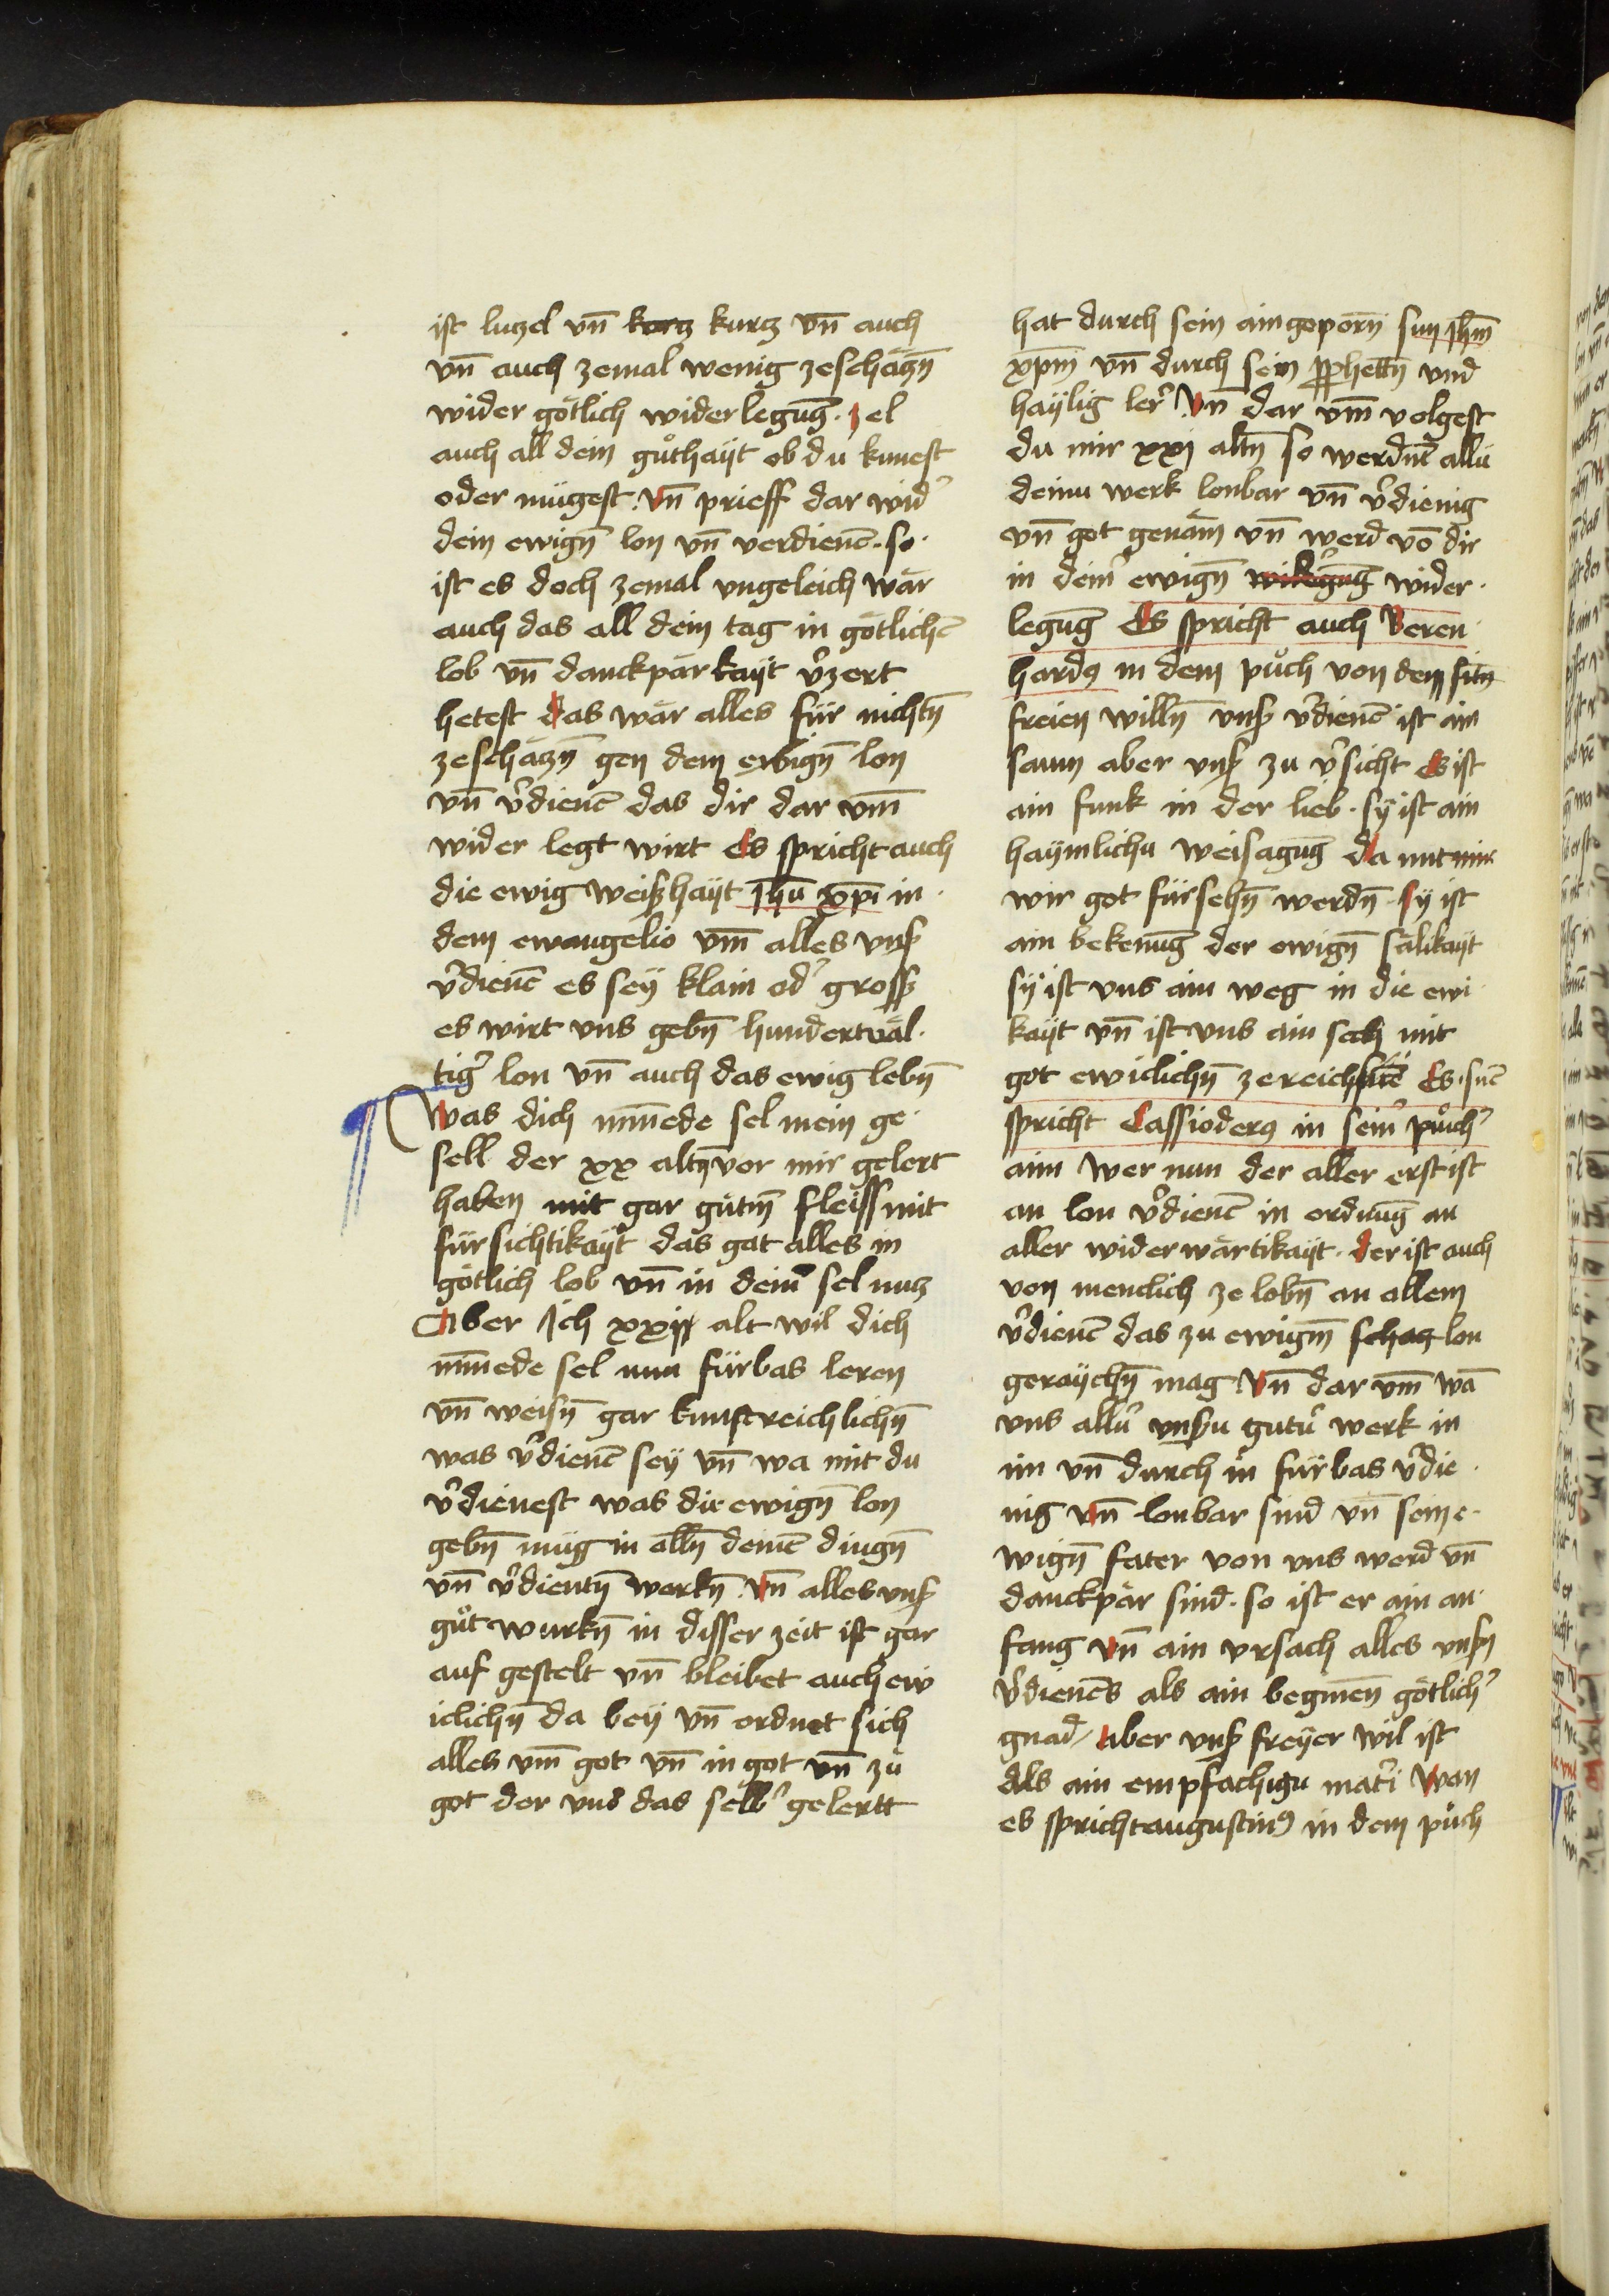 ist lutzel vn̄ kortz kurtz vn̄ auch
vn̄ auch zemal wenig zeschäczn̄
wider götlich widerlegūg · zel
auch all dein gůthaÿt ob du kunest
oder mügest · Vn̄ prieff dar wid͛
dein ewign̄ lon vn̄ verdienē · so ·
ist es doch zemal vngeleich wär
auch das all dein tag in götlichē
lob vn̄ danckpärkaÿt v͛zert
hetest das wär alles für nichtn̄
zeschäczn̄ gen dem ewign̄ lon
vn̄ v͛dienē das dir dar vm̄
wider legt wirt Es spricht auch
die ewig weißhaÿt ihū xp̄i in ·
dem ewangelio vm̄ alles vnß
v͛dienē es seÿ klain od͛ groß
es wirt vns gebn̄ hundertuäl ·
tig͛ lon vn̄ auch das ewig lebn̄
Was dich mīnede sel mein ge ·
sell der xx altn̄ vor mir gelert
haben mit gar gůtm̄ fleiss mit
fürsichtikaÿt das gat alles in
götlich lob vn̄ in dein͛ sel nutz
Aber Ich xxij alt wil dich
mīnede sel nun fürbas leren
vn̄ weisn̄ gar kunstreichlichn̄
was v͛dienē seÿ vn̄ wa mit du
v͛dienest was die ewign̄ lon
gebn̄ müg in alln̄ deinē dingn̄
vn̄ v͛dientn̄ werkn̄ · Vn̄ alles vnß
gůt wurkn̄ in disser zeit ist gar
auf gestelt vn̄ bleibet auch ew
iclichn̄ da beÿ vn̄ ordnet sich
alles vm̄ got vn̄ in got vn̄ zů
got der vns das selb͛ gelertt
hat durch sein aingeporn̄ sun ihm̄
xp̄m vn̄ durch sein pphettn̄ vnd
haÿlig ler͛ Vn̄ dar vm̄ volgest
du mir xxj altn̄ so werdnt allü
deinu werk lonbar vn̄ v͛dienig
vn̄ got genäm vn̄ werd vō dir
in deim͛ ewign̄ wider ·
legūg Es spricht auch Beren
hardꝯ in dem půch von dem sitn̄
freien willn̄ vnß v͛dienē ist ain
saum aber vnß zu v͛sicht Es ist
ain funk in der lieb · sÿ ist ain
haÿmlichu weisagūg da mit mir
wir got fürsehn̄ werdn̄ · sÿ ist
ain bekenūg der ewign̄ sälikaÿt
sÿ ist vns ain weg in die ewi ·
kaÿt vn̄ ist vns ain sach mit
got ewiclichn̄ zereich Es ·
spricht Cassioderꝯ in seim͛ půch͛
aim Wer nun der aller erst ist
an lon v͛dienē in ordnūg an
aller widerwärtikaÿt · der ist auch
von menclich ze lobn̄ an allem
v͛dienē das zu ewigm̄ schatz lon
geraÿchn̄ mag Vn̄ dar vm̄ wā
vns allü͛ vnßu gutü͛ werk in
im vn̄ durch in fürbas v͛die ·
nig vn̄ lonbar sind vn̄ seim e ·
wign̄ fater von vns werd vn̄
danckpär sind · so ist er ain an ·
fang vn̄ ain vrsach alles vnßn
v͛dienēs als ain begiñen götlich͛
gnad / Aber vnß freÿer wil ist
als ain empfachigu mat͛i Wan
es spricht augustinꝯ in dem půch